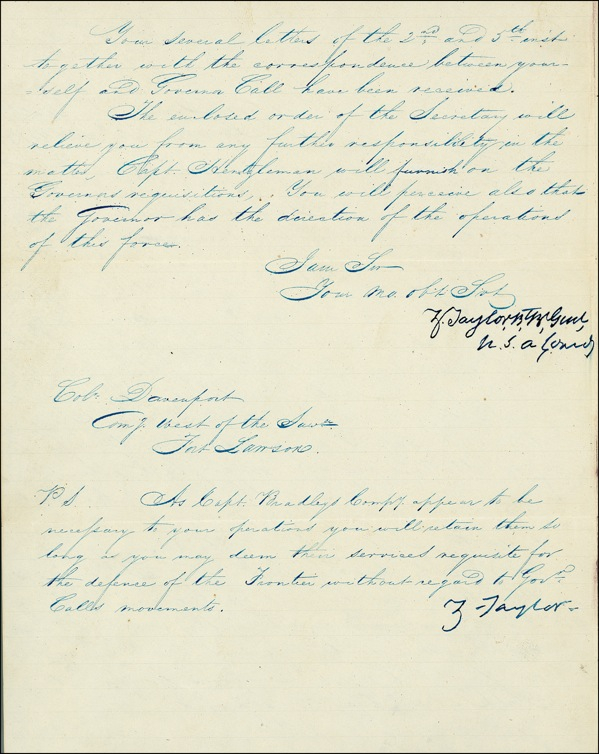 Your several letters of the 2nd and 5th inst
together with the correspondence between your-
-self and Governr Call have been received.
The enclosed order of the Secretary will
relieve you from any further responsibility in the
matter Capt. Heintzleman will furnish on the
Governors requisitions. You will perceive also that
the Governor has the direction of the operations
of this force.
I am Sir
Your mo. obt. Svt
Z. Taylor, Bt. Br. Genl,
U. S. A Comdg
Colo. Davenport
Comg. West of the Suwe.
Fort Lawson.
P. S. As Capt. Bradleys Compy. appear to be
necessary to your operations you will retain them so
long as you may deem their services requisite for
the defence of the Frontier without regard to Govr.
Calls movements.
Z Taylor